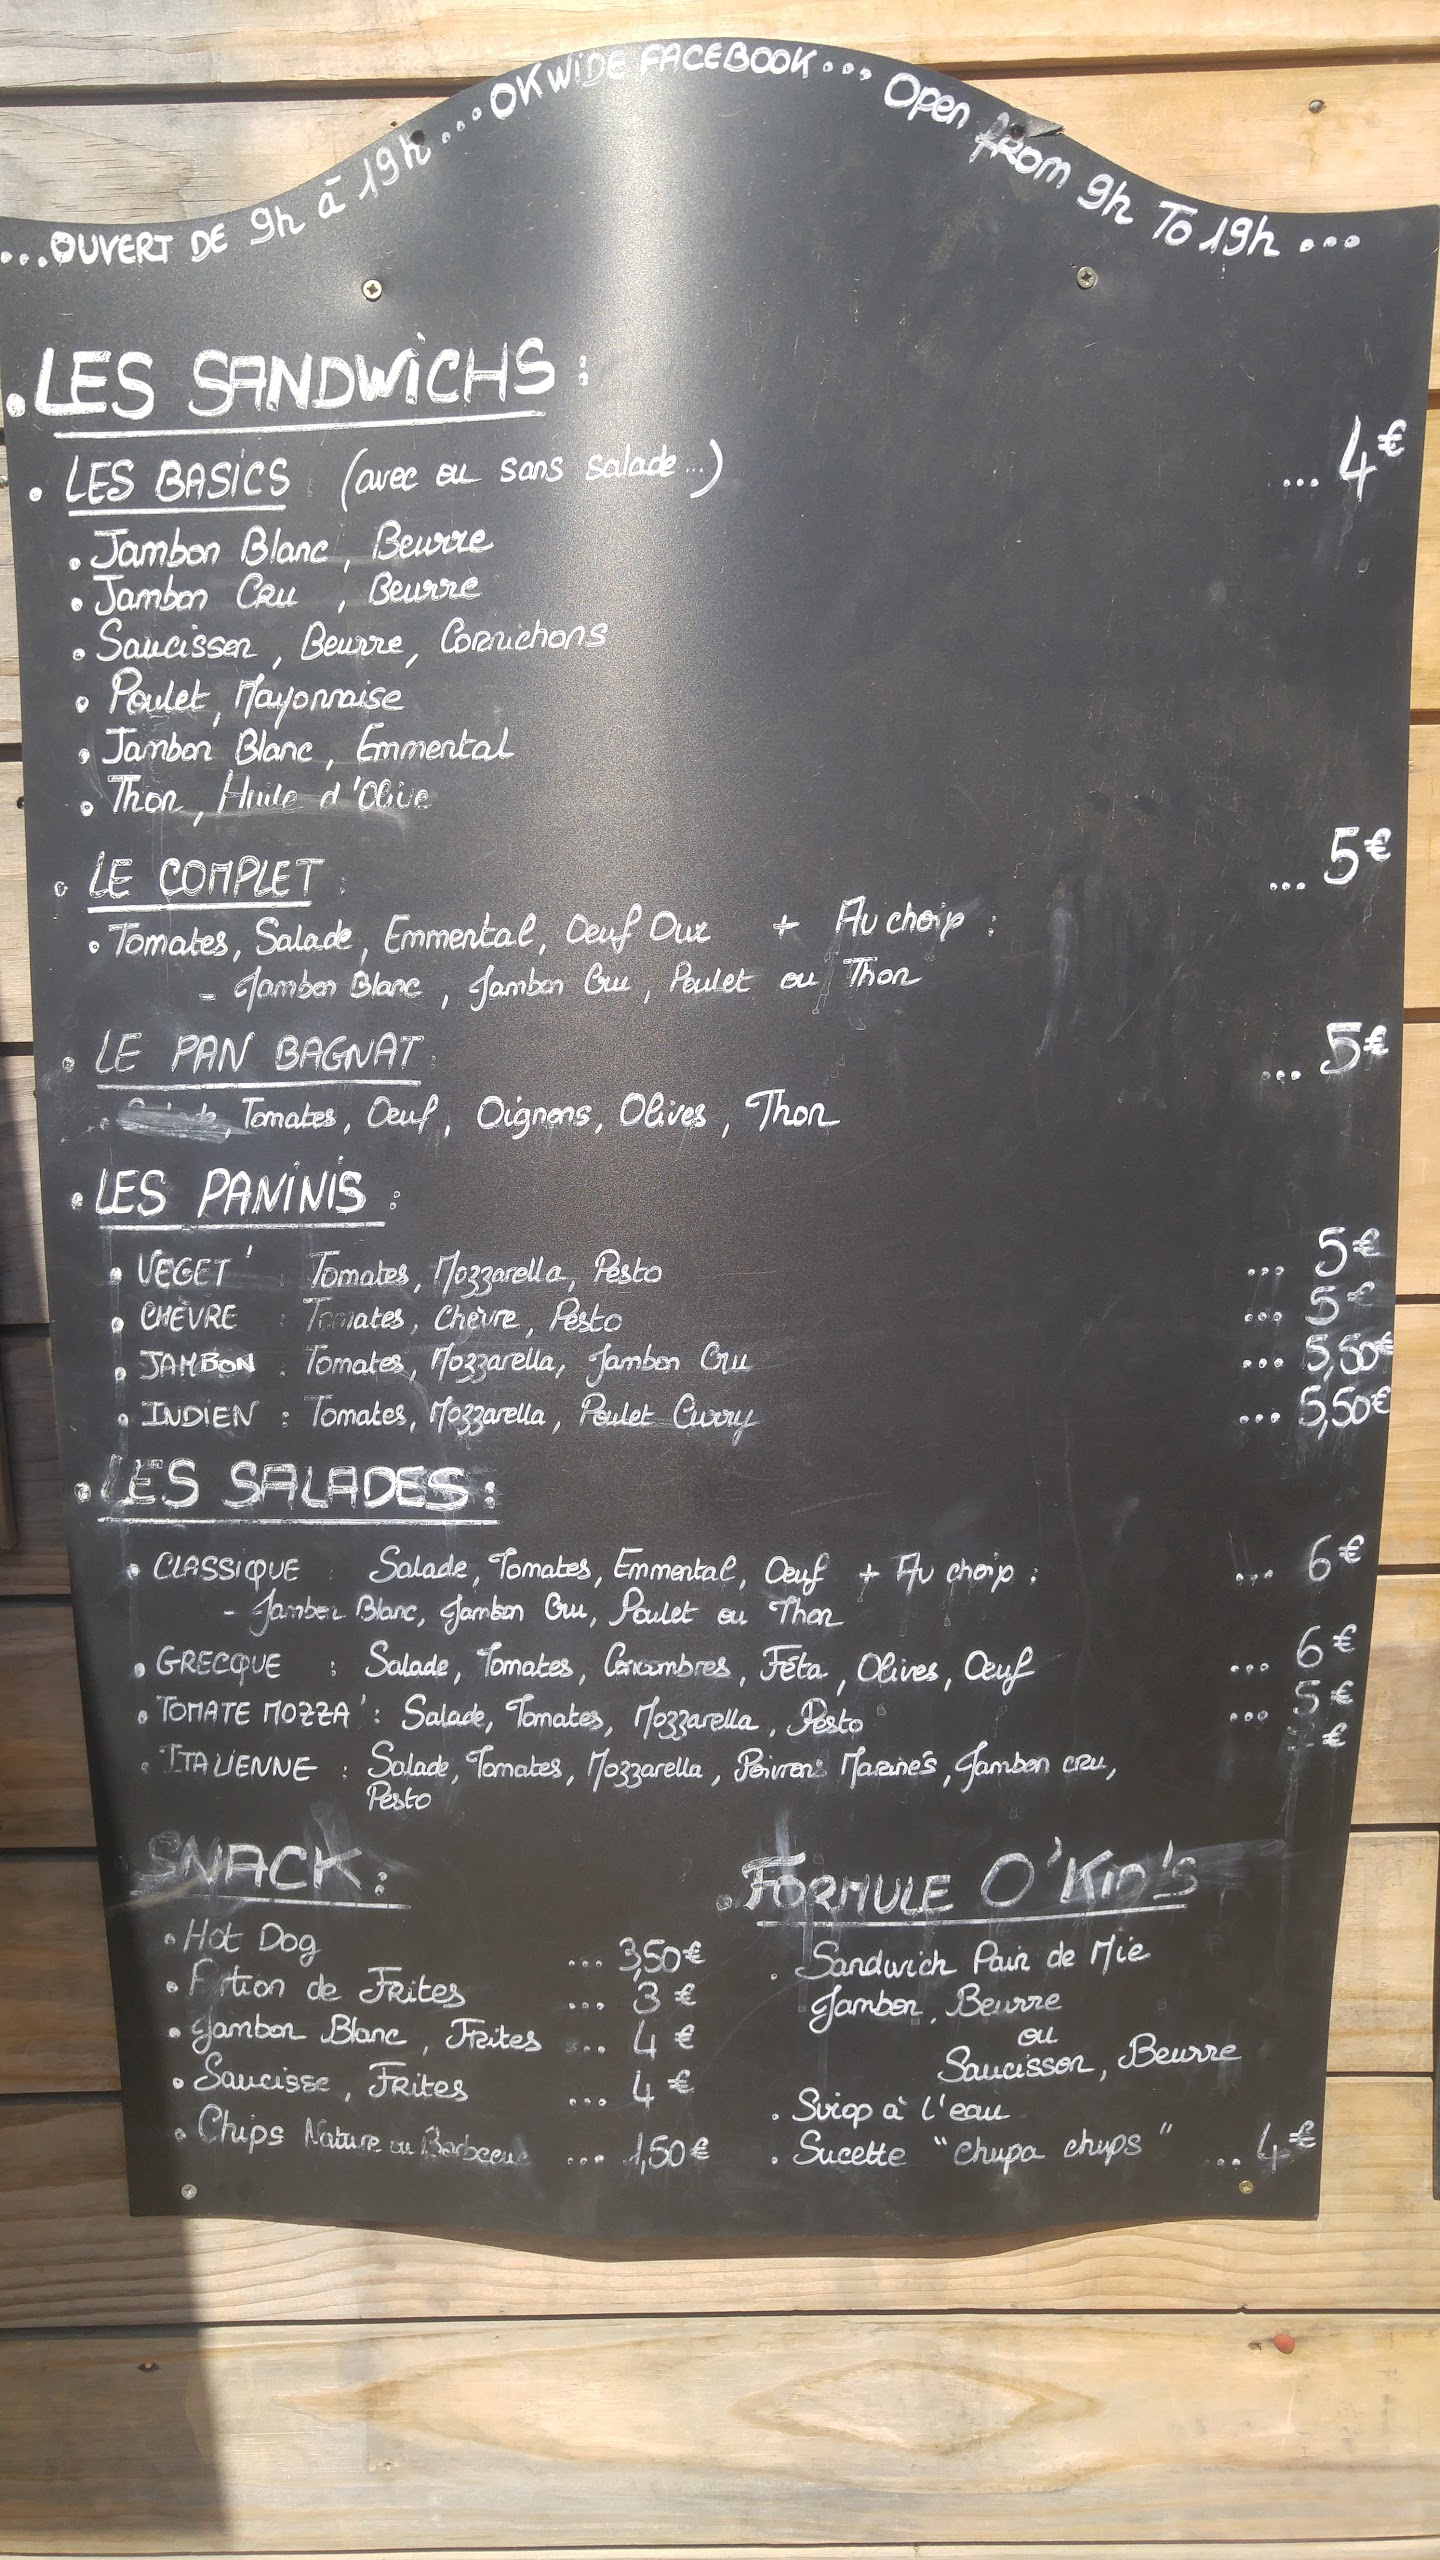 ...OUVERT DE 9h à 19h...OKWIDE FACEBOOK... Open from 9h To 19h...
• LES SANDWICHS :
• LES BASICS : (avec ou sans salade...) ... 4€
• Jambon Blanc, Beurre
• Jambon Cru, Beurre
• Saucisson, Beurre, Cornichons
• Poulet, Mayonnaise
• Jambon Blanc, Emmental
• Thon, Huile d'Olive
• LE COMPLET : ... 5€
• Tomates, Salade, Emmental, Oeuf Dur + Au choix :
- Jambon Blanc, Jambon Cru, Poulet ou Thon
• LE PAN BAGNAT : ... 5€
Tomates, Oeuf, Oignons, Olives, Thon
• LES PANINIS :
• VEGET' : Tomates, Mozzarella, Pesto ... 5€
• CHÈVRE : Tomates, Chèvre, Pesto ... 5€
• JAMBON : Tomates, Mozzarella, Jambon Cru ... 5,50€
• INDIEN : Tomates, Mozzarella, Poulet Curry ... 5,50€
• LES SALADES :
• CLASSIQUE : Salade, Tomates, Emmental, Oeuf + Au choix : ... 6€
- Jambon Blanc, Jambon Cru, Poulet ou Thon
• GRECQUE : Salade, Tomates, Concombres, Féta, Olives, Oeuf ... 6€
• TOMATE MOZZA' : Salade, Tomates, Mozzarella, Pesto ... 5€
• ITALIENNE : Salade, Tomates, Mozzarella, Poivrons Marinés, Jambon cru, €
Pesto
SNACK :
• Hot Dog ... 3,50€
• Portion de Frites ... 3€
• Jambon Blanc, Frites ... 4€
• Saucisse, Frites ... 4€
• Chips Nature ou Barbecue ... 1,50€
• FORMULE O'KID'S
. Sandwich Pain de Mie
Jambon, Beurre
ou
Saucisson, Beurre
. Sirop à l'eau
. Sucette "chupa chups" ... 4€